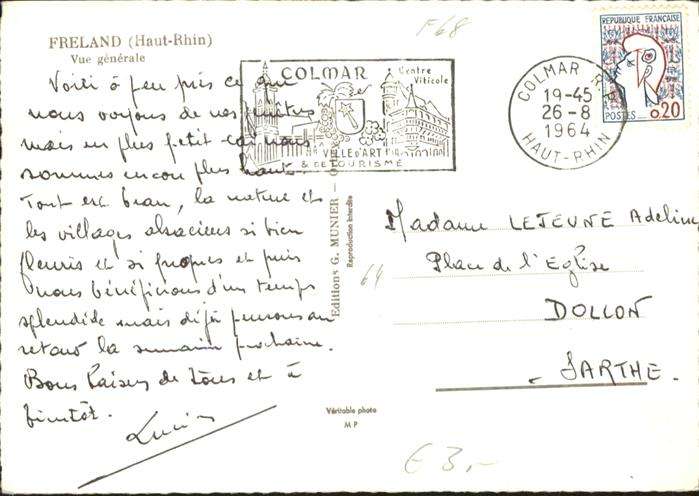 FRELAND (Haut-Rhin)
Vue générale
Voilà à peu près ce que
nous voyons de nos fenêtres
mais en plus petit car nous
sommes encore plus haut.
Tout est beau, la nature et
les villages alsaciens si bien
fleuris et si propres et puis
nous bénéficions d'un temps
splendide mais déjà pensons au
retour la semaine prochaine.
Bons baisers de tous et à
bientôt.
Lucien
F68
COLMAR
Centre
Viticole
VILLE D'ART
& DE TOURISME
COLMAR R.P.
19-45
26-8
1964
HAUT-RHIN
REPUBLIQUE FRANÇAISE
POSTES
0,20
Editions G. MUNIER
Reproduction interdite
64
Madame LEJEUNE Adeline
Place de l'Eglise
DOLLON
SARTHE
Véritable photo
M P
€ 3,-